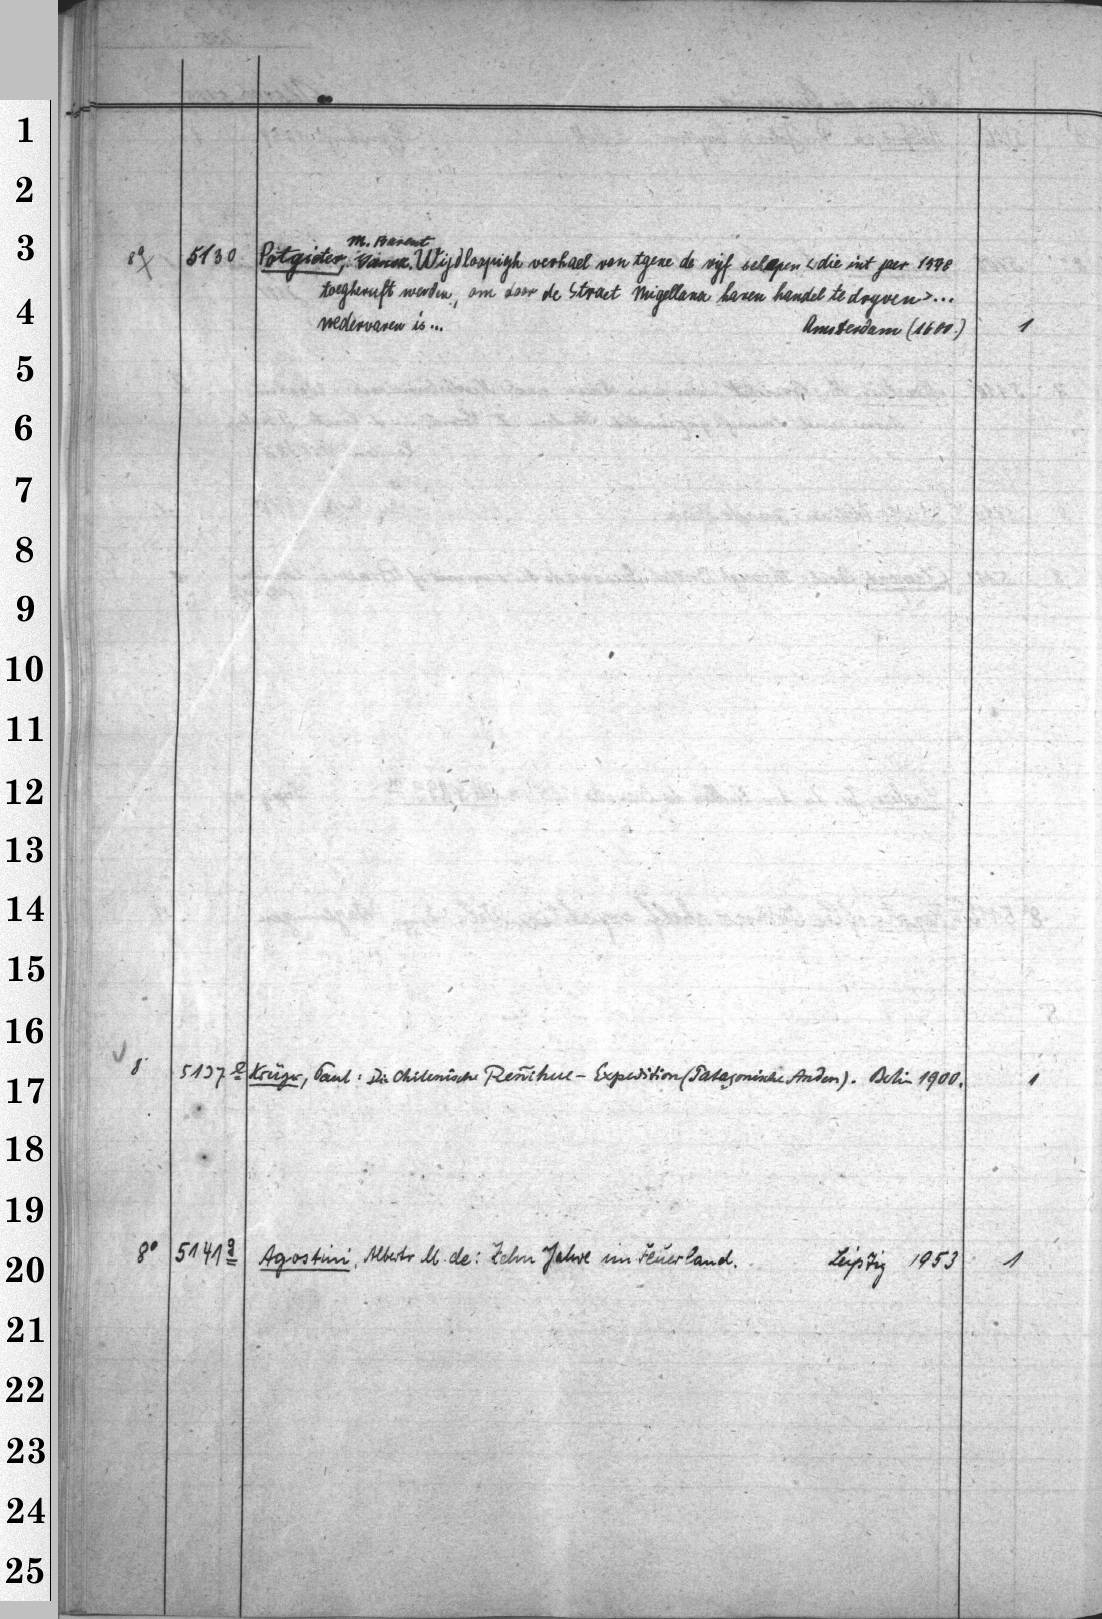 1
2
3
4
5
6
7
8
9
10
11
12
13
14
15
16
17
18
19
20
21
22
23
24
25
M. Barent
8° 5130 Potgieter, Wijdloopigh verhael van tgene de vijf schepen <die int jaer 1598
toegherust werden, om door de Straet Magellana haren handel te dryven> ...
wedervaren is ... Amsterdam (1600.) 1
8° 5137 e Krüger, Paul: Die Chilenische Reñihue-Expedition (Patagonische Anden). Berlin 1900. 1
8° 5141 a Agostini, Alberto M. de: Zehn Jahre im Feuerland. Leipzig 1953 1